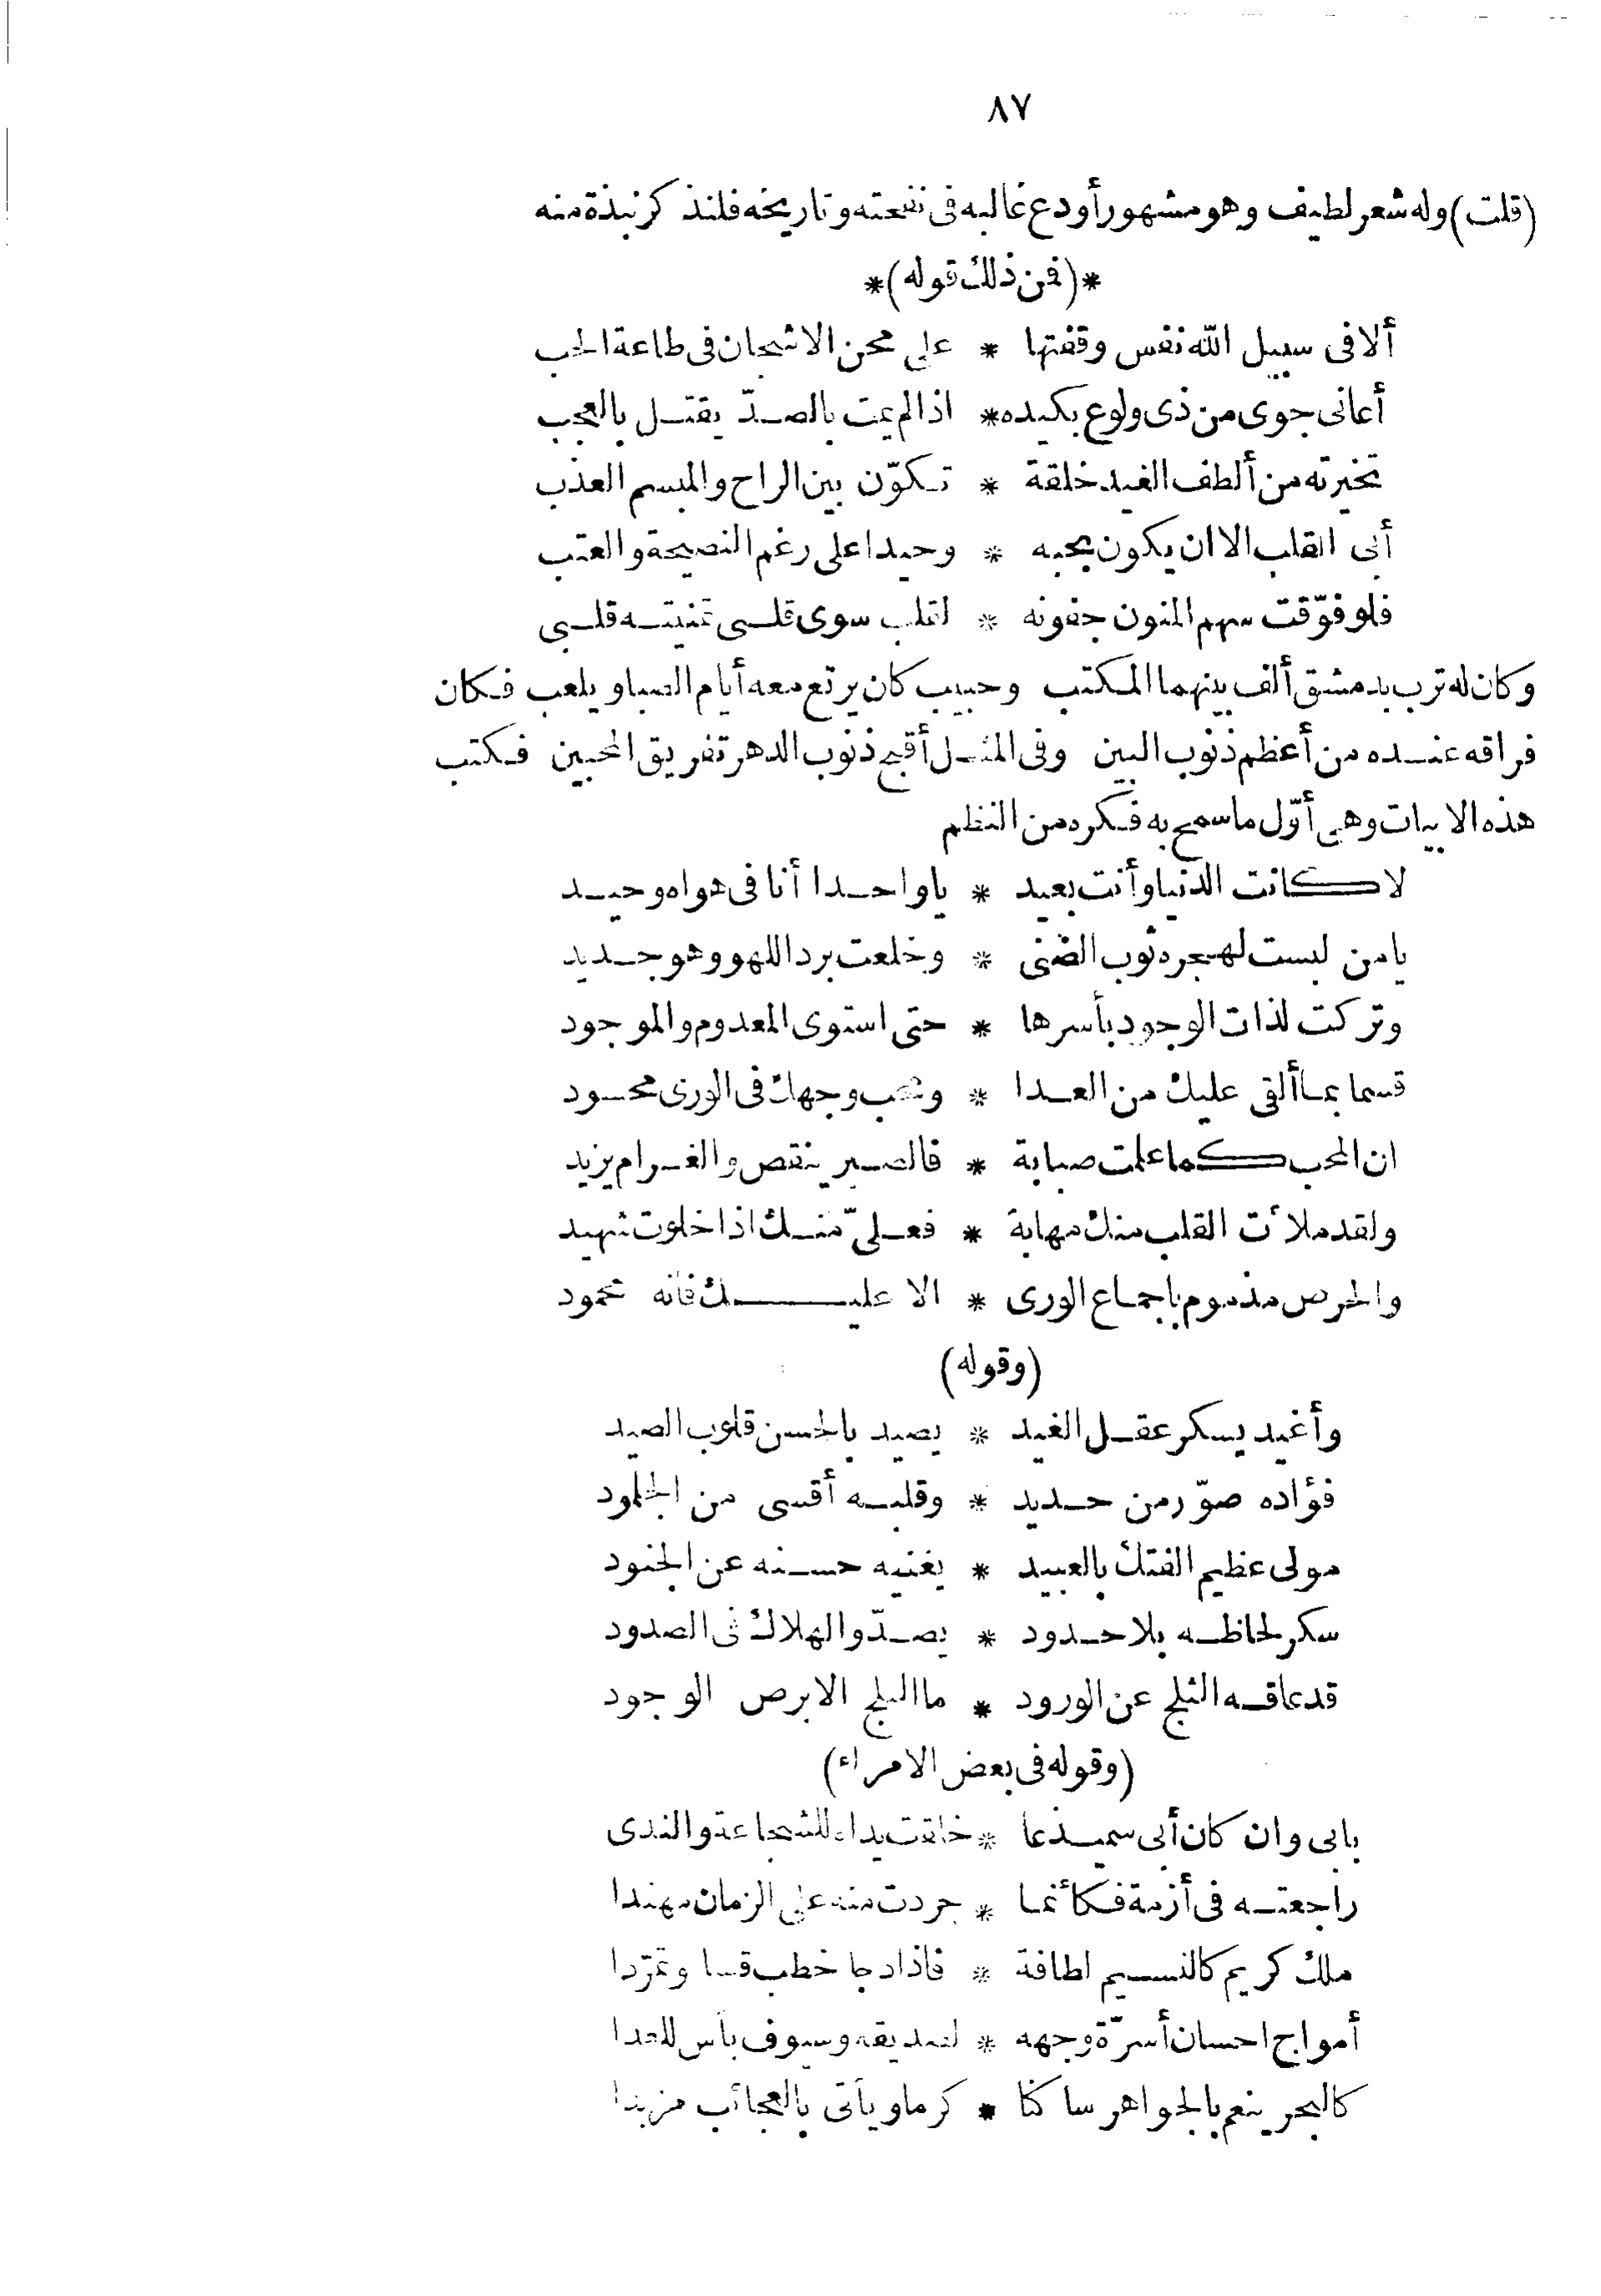 ٨٧
(قلت) وله شعر لطيف وهو مشهور أودع غالبه فى نفحته وتاريخه فلنذكر نبذة منه
*(فمن ذلك قوله)*
ألا فى سبيل الله نفس وقفتها * على محن الاشجان فى طاعة الحب
أعانى جوى من ذى ولوع بكيده * اذا لم يمت بالصدّ يقتل بالعجب
تخيرته من ألطف الغيد خلقة * تكوّن بين الراح والمبسم العذب
أبى القلب الا ان يكون بحبه * وحيدا على رغم النصيحة والعتب
فلو فوّقت سهم المنون جفونه * لقلب سوى قلبى تمنيته قلبى
وكان له ترب بدمشق ألف بينهما المكتب وحبيب كان يرتع معه أيام الصبا ويلعب فكان
فراقه عنده من أعظم ذنوب البين وفى المثل أقبح ذنوب الدهر تفريق المحبين فكتب
هذه الابيات وهى أوّل ما سمح به فكره من النظم
لا كانت الدنيا وأنت بعيد * يا واحدا أنا فى هواه وحيد
يا من لبست لهجره ثوب الضنى * وخلعت برد اللهو وهو جديد
وتركت لذات الوجود بأسرها * حتى استوى المعدوم والموجود
قسما بما ألقى عليك من العدا * ومحب وجهك فى الورى محسود
ان المحب كما علمت صبابة * فالصبر ينقص والغرام يزيد
ولقد ملأت القلب منك مهابة * فعلىّ منك اذا خلوت شهيد
والحرص مذموم باجماع الورى * الا عليك فانه محمود
(وقوله)
وأغيد يسكر عقل الغيد * يصيد بالحسن قلوب الصيد
فؤاده صوّر من حديد * وقلبه أقسى من الجلمود
مولى عظيم الفتك بالعبيد * يغنيه حسنه عن الجنود
سكر لحاظه بلا حدود * يصدّ والهلاك فى الصدود
قد عاقه الثلج عن الورود * ما الثلج الا برص الوجود
(وقوله فى بعض الامراء)
بابى وان كان أبى سميذعا * خلقت يداه للشجاعة والندى
راجعته فى أزمة فكأنما * جردت منه على الزمان مهندا
ملك كريم كالنسيم لطافة * فاذا دجا خطب قسا وتمرّدا
أمواج احسان أسرّة وجهه * لصديقه وسيوف بأس للعدا
كالبحر ينعم بالجواهر ساكنا * كرما ويأتى بالعجائب مزبدا